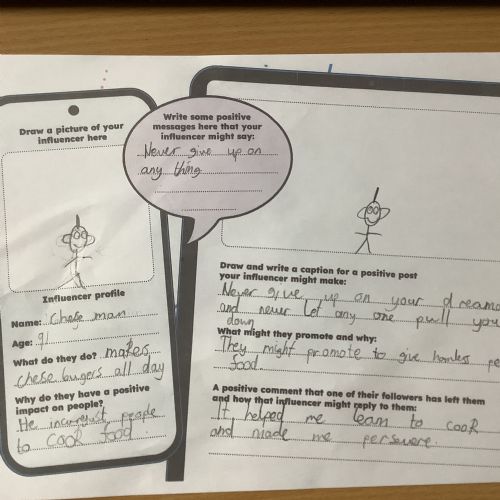 Draw a picture of your
influencer here
Influencer profile
Name: Chese man
Age: 91
What do they do? makes
chese burgers all day
Why do they have a positive
impact on people?
He people
to cook food
Write some positive
messages here that your
influencer might say:
Never give up on
any thing
Draw and write a caption for a positive post
your influencer might make:
Never give up on your dreams
and never let any one pull you
down
What might they promote and why:
They might promote to give homless pe
food.
A positive comment that one of their followers has left them
and how that influencer might reply to them:
It helped me learn to cook
and made me persevere.